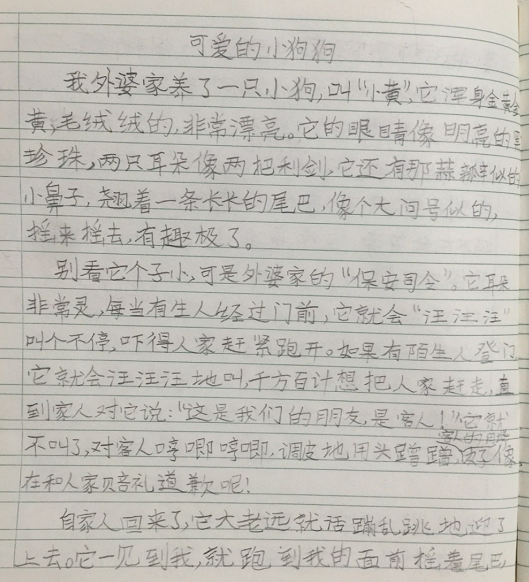 可爱的小狗狗
我外婆家养了一只小狗,叫"小黄",它浑身金黄金
黄,毛绒绒的,非常漂亮。它的眼睛像明亮的黑
珍珠,两只耳朵像两把利剑,它还有那蒜瓣似的
小鼻子,翘着一条长长的尾巴,像个大问号似的,
摇来摇去,有趣极了。
别看它个子小,可是外婆家的"保安司令"。它耳朵
非常灵,每当有生人经过门前,它就会"汪汪汪"
叫个不停,吓得人家赶紧跑开。如果有陌生人登门,
它就会汪汪汪地叫,千方百计想把人家赶走,直
到家人对它说:"这是我们的朋友,是客人!"它就
不叫了,对客人哼唧哼唧,调皮地用头蹭蹭客人的腿,像
在和人家赔礼道歉呢!
自家人回来了,它大老远就活蹦乱跳地迎了
上去。它一见到我,就跑到我的面前摇着尾巴